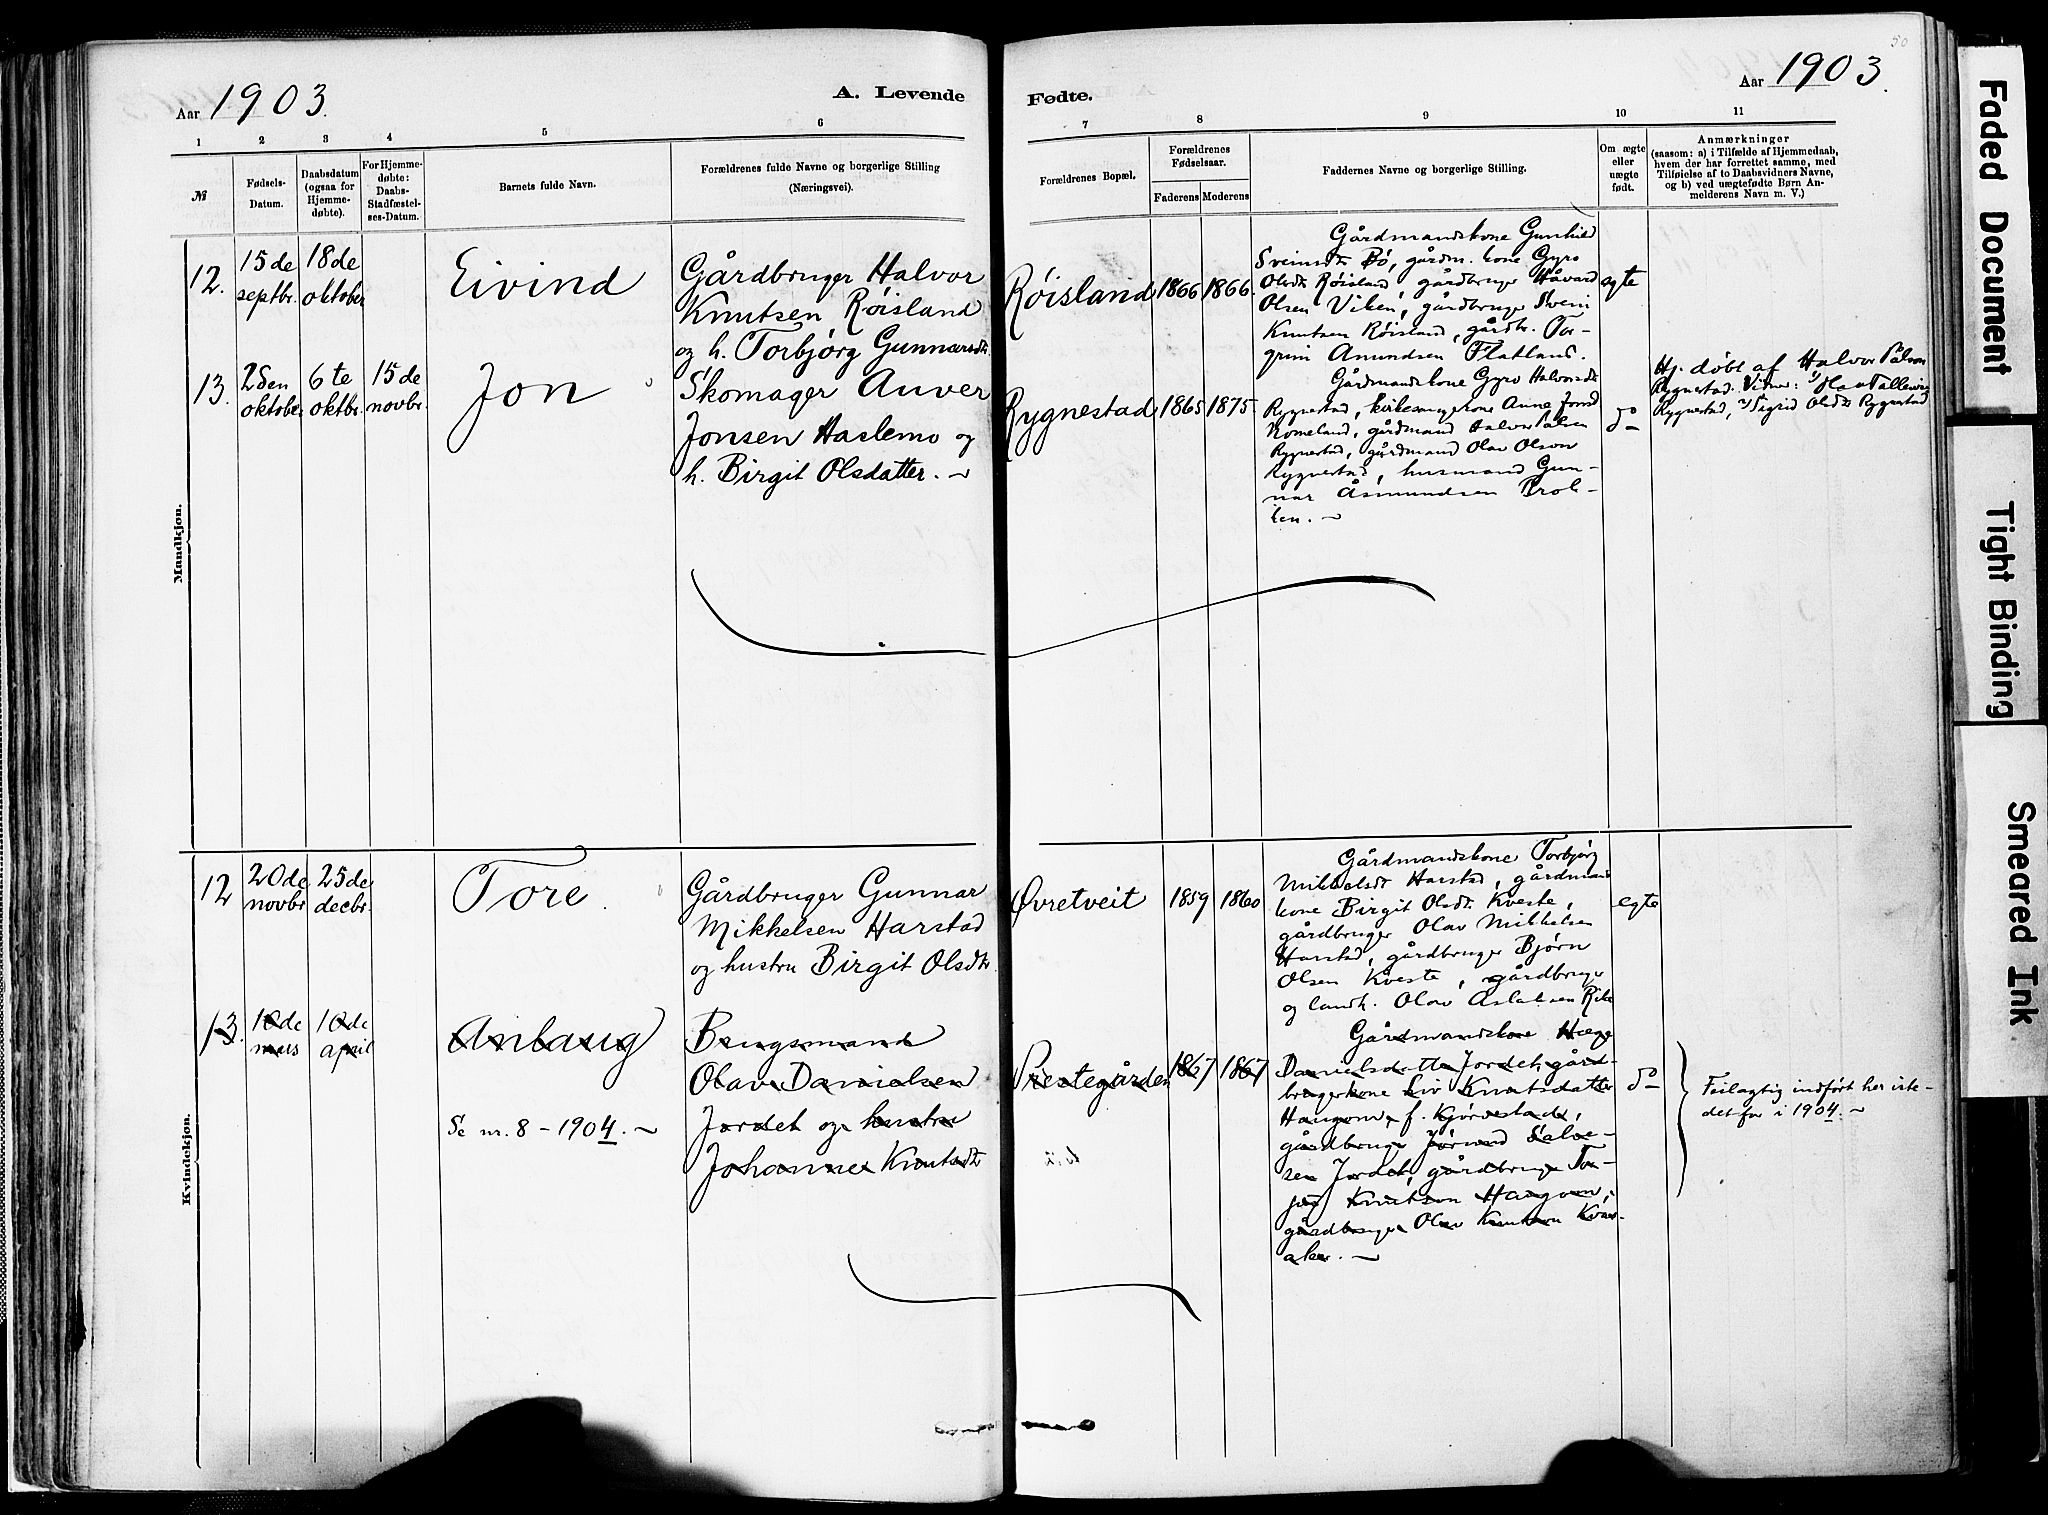 50
Aar 1903.
A. Levende
Fødte.
Aar 1903.
1 2 3 4 5 6 7 8 9 10 11
№
Fødsels-
Datum.
Daabsdatum
(ogsaa for
Hjemme-
døbte).
For Hjemme-
døbte:
Daabs-
Stadfæstel-
ses-Datum.
Barnets fulde Navn.
Forældrenes fulde Navne og borgerlige Stilling
(Næringsvei).
Forældrenes Bopæl.
Forældrenes
Fødselsaar.
Faderens Moderens
Faddernes Navne og borgerlige Stilling.
Om ægte
eller
uægte
født.
Anmærkninger
(saasom: a) i Tilfælde af Hjemmedaab,
hvem der har forrettet samme, med
Tilføielse af to Daabsvidners Navne,
og b) ved uægtefødte Børn An-
melderens Navn m. V.)
Mandkjøn.
12.
15de
septbr.
18de
oktober
Eivind
Gårdbruger Halvor
Knutsen Røisland
og h. Torbjørg Gunnarsdtr
Røisland
1866 1866.
Gårdmandskone Gunhild
Sveinsdtr Bø, gårdm. kone Gyro
Olsdtr Røisland, gårdbruger Håvard
Olsen Viken, gårdbruger Svein
Knutsen Røisland, gårdbr. Tor-
grim Amundsen Flatland.
egte
13.
2den
oktober
6te
oktbr.
15de
novbr.
Jon
Skomager Auver
Jonsen Haslemo og
h. Birgit Olsdatter. ~
Rygnestad
1865 1875
Gårdmandskone Gyro Halvorsdtr
Rygnestad, kirkesangerkone Anne Jonsd
Homeland, gårdmand Halvor Pålsen
Rygnestad, gårdmand Olav Olson
Rygnestad, husmand Gun-
nar Åsmundsen Brok-
ken. ~
do
Hj. døbt af Halvor Pålson
Rygnestad. Vitner: 1) Olav Talleivs
Rygnestad, 2) Sigrid Olsdtr Rygnestad
Kvindekjøn.
12
20de
novbr
25de
decbr.
Tore
Gårdbruger Gunnar
Mikkelsen Harstad
og hustru Birgit Olsdtr.
Øvretveit
1859 1860
Gårdmandskone Torbjørg
Mikkelsdt Harstad, gårdmand
kone Birgit Olsdtr Kveste,
gårdbruger Olav Mikkelsen
Harstad, gårdbruger Bjørn
Olsen Kveste, gårdbruger
og landh. Olav Aslaksen Rike
egte
13.
10de
mars
10de
april
Anlaug
Se nr. 8 - 1904. ~
Brugsmand
Olav Danielsen
Jordet og hustru
Johanne Knutsdtr
Prestegården
1867 1867
Gårdmandskone Hæge
Danielsdatter Jordet, gård-
brugerkone Liv Knutsdatter
Haugom, f. Kjørvestad,
gårdbruger Jørund Salve-
sen Jordet, gårdbruger Tor-
jug Knutson Haugom,
gårdbruger Olav Knutson Kvas-
aker. ~
do
Feilagtig indført her iste-
det for i 1904. ~
Faded Document
Tight Binding
Smeared Ink